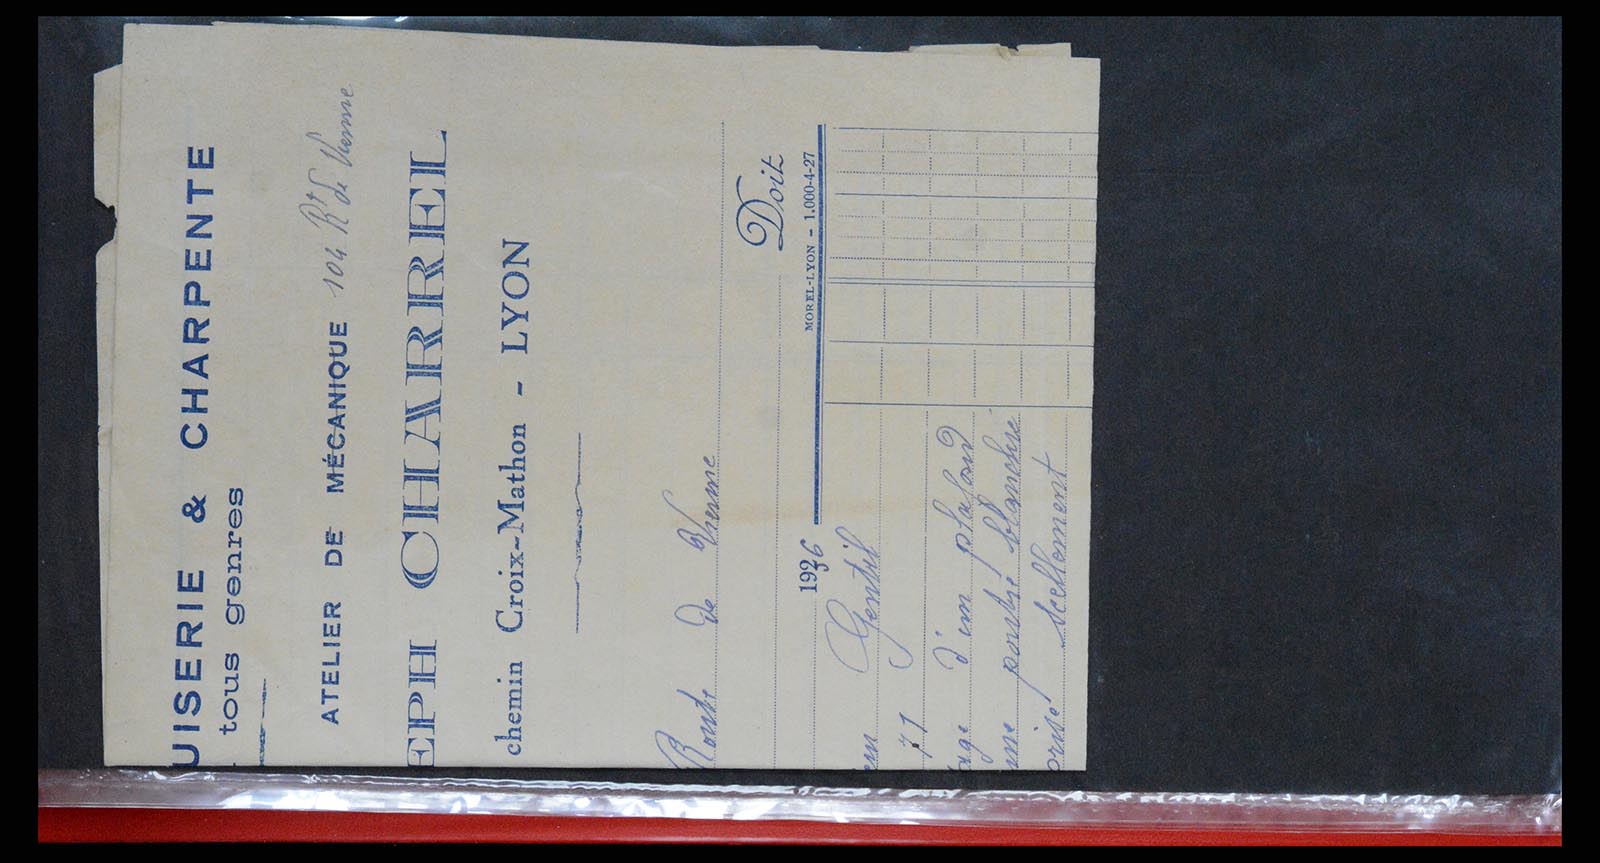 UISERIE & CHARPENTE
tous genres
ATELIER DE MÉCANIQUE 104 Rt de Vienne
EPH CHARREL
chemin Croix-Mathon - LYON
Route de Vienne
Doit
MOREL-LYON - 1.000-4-27
1926
en Gentil
71
age d'un plafond
une poutre blanchie
prise scellement